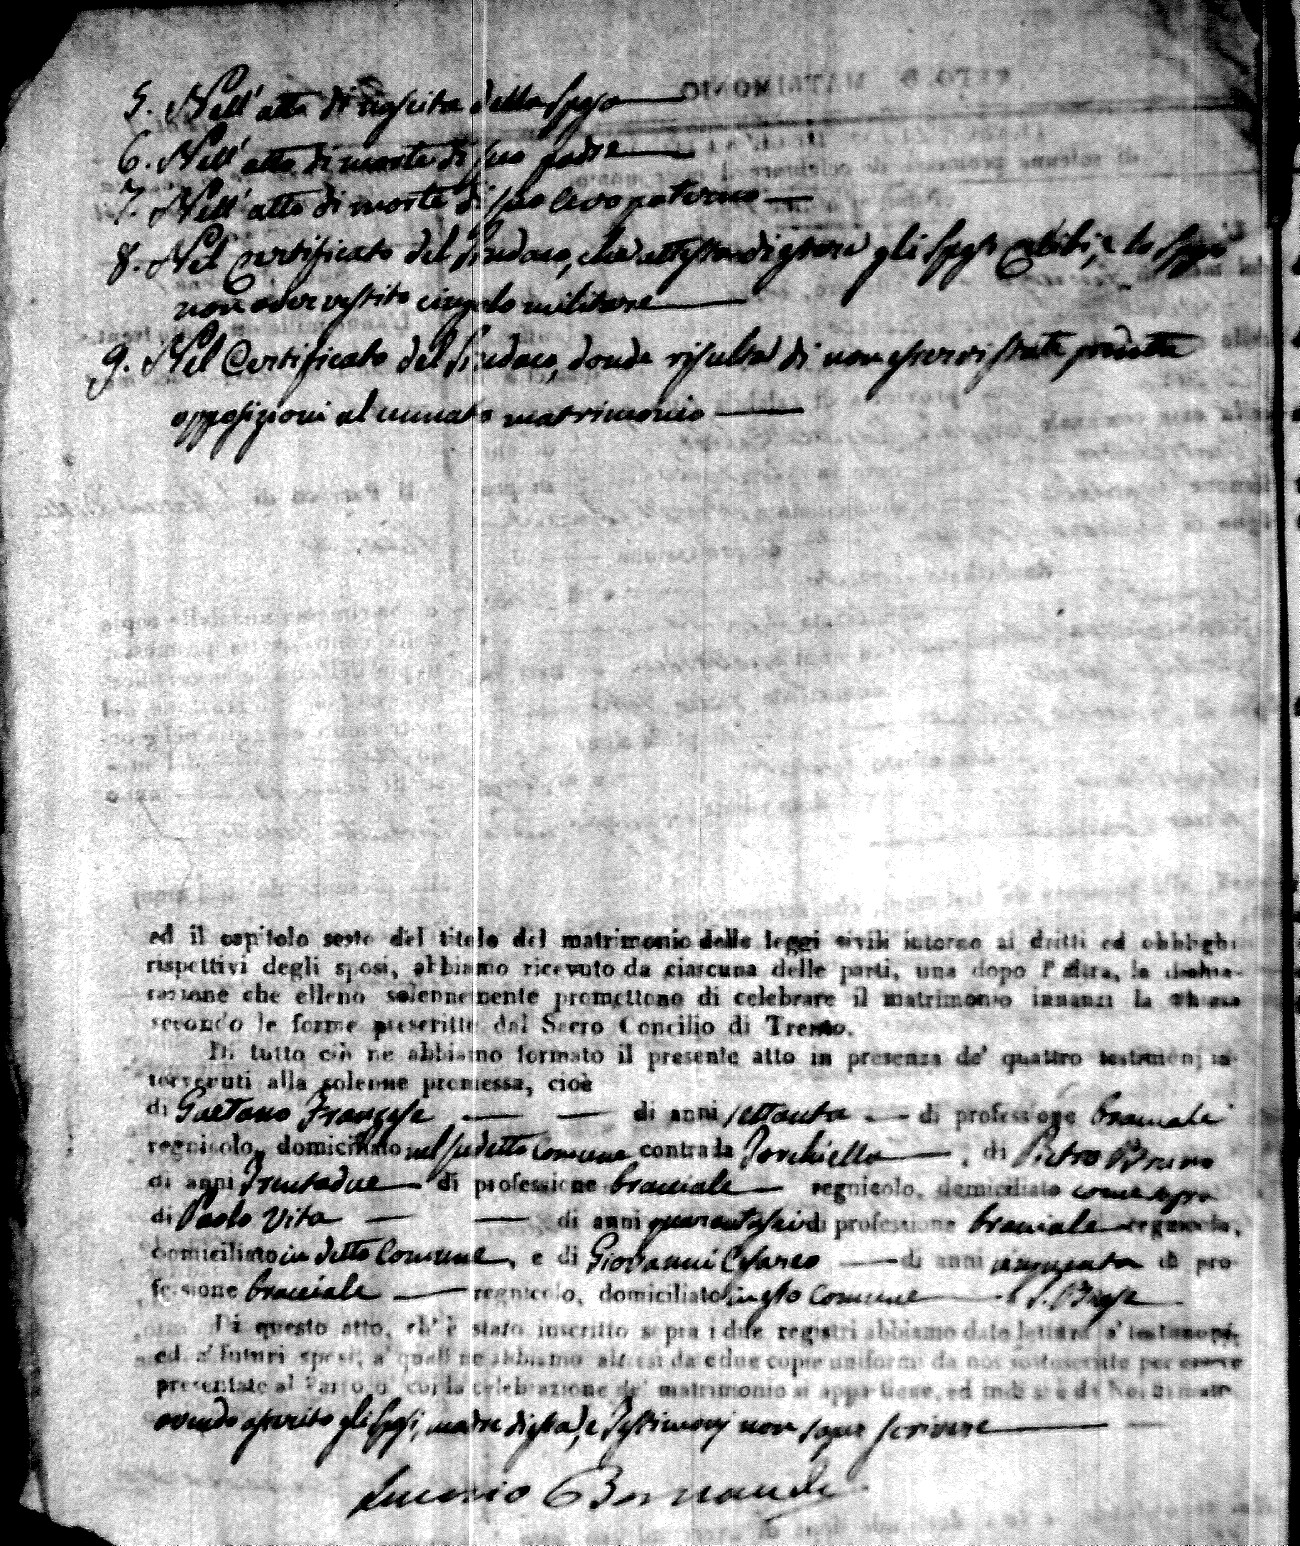 5. Nell' atto di nascita della sposa
6. Nell' atto di morte di suo padre
7. Nell' atto di morte di suo avo paterno
8. Nel Certificato del Sindaco, che attesta di essere gli sposi celibi, e lo sposo
non aver vestito cingolo militare
9. Nel Certificato del Sindaco, donde risulta di non esservi state prodotte
opposizioni al cennato matrimonio
ed il capitolo sesto del titolo del matrimonio delle leggi civili intorno ai dritti ed obblighi
rispettivi degli sposi, abbiamo ricevuto da ciascuna delle parti, una dopo l' altra, la dichia-
razione che elleno solennemente promettono di celebrare il matrimonio innanzi la Chiesa
secondo le forme prescritte dal Sacro Concilio di Trento.
Di tutto ciò ne abbiamo formato il presente atto in presenza de' quattro testimonj in-
tervenuti alla solenne promessa, cioè
di Gaetano Francese di anni settanta di professione bracciale
regnicolo, domiciliato nel sudetto Comune contrada , di Pietro Bruno
di anni Trentadue di professione bracciale regnicolo, domiciliato come sopra
di Paolo Vita di anni quarantasei di professione bracciale regnicolo,
domiciliato in detto Comune, e di Giovanni Cesareo di anni cinquanta di pro-
fessione bracciale regnicolo, domiciliato in Comune S. Biase
Di questo atto, ch' è stato inscritto sopra i due registri abbiamo dato lettura a' testimonj,
ed a' futuri sposi, a' quali ne abbiamo altresì date due copie uniformi da noi sottoscritte per essere
presentate al Parroco a cui la celebrazione del matrimonio si appartiene, ed indi si è da Noi firmato
avendo asserito gli sposi, madre di essa, e Testimonj non saper scrivere